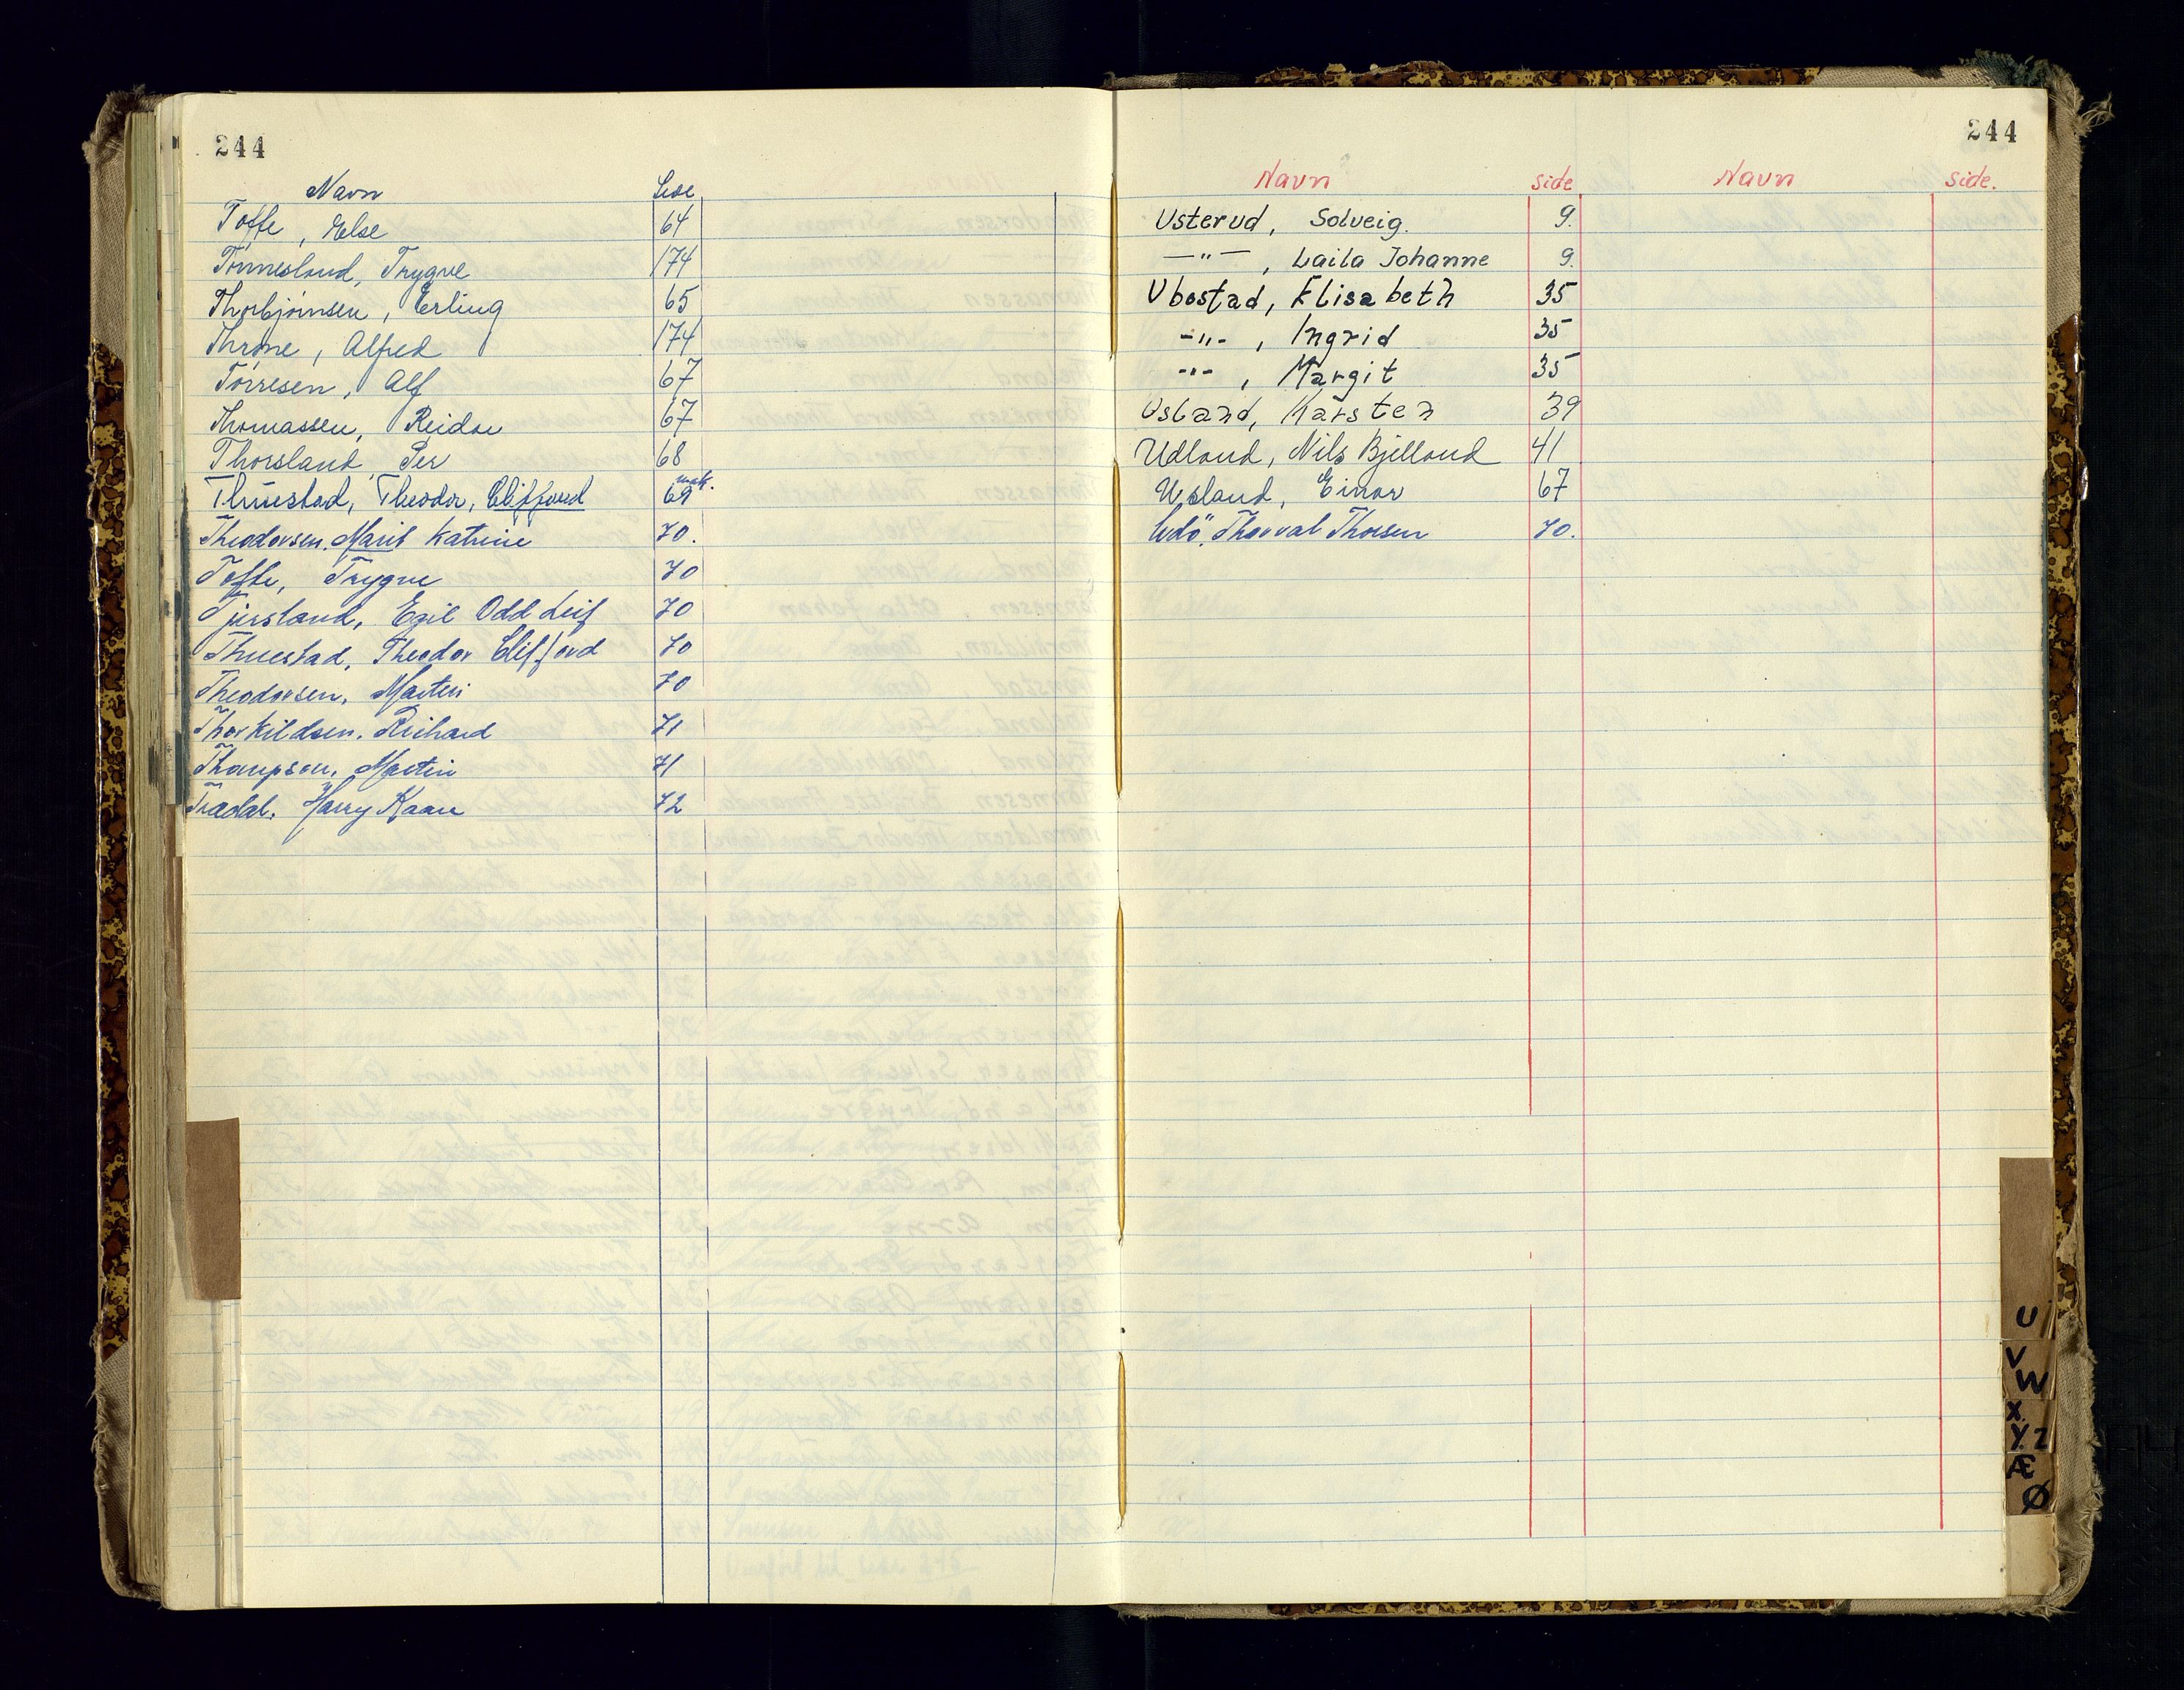 244
Navn Side
Toffe, Else 64
Tønnesland, Trygve 174
Thorbjørnsen, Erling 65
Throne, Alfred 174
Tørresen, Alf 67
Thomassen, Reidar 67
Thorsland, Per 68
Thuestad, Theodor, Clifford 69
Theodorsen, Marit Katrine 70.
Toffe, Trygve 70
Tjersland, Egil Odd Leif 70
Thuestad, Theodor Clifford 70
Theodorsen, Martin 70
Thorkildsen, Richard 71
Thompson, Martin 71
Trædal, Harry Kaare 72
244
Navn side Navn side.
Usterud, Solveig. 9.
—"— , Laila Johanne 9.
Ubostad, Elisabeth 35
-"- , Ingrid 35
-"- , Margit 35
Usland, Karsten 39
Udland, Nils Bjelland 41
Usland, Einar 67
Udø, Thorval Thorsen 70.
U
V
W
X
Y Z
Æ
Ø